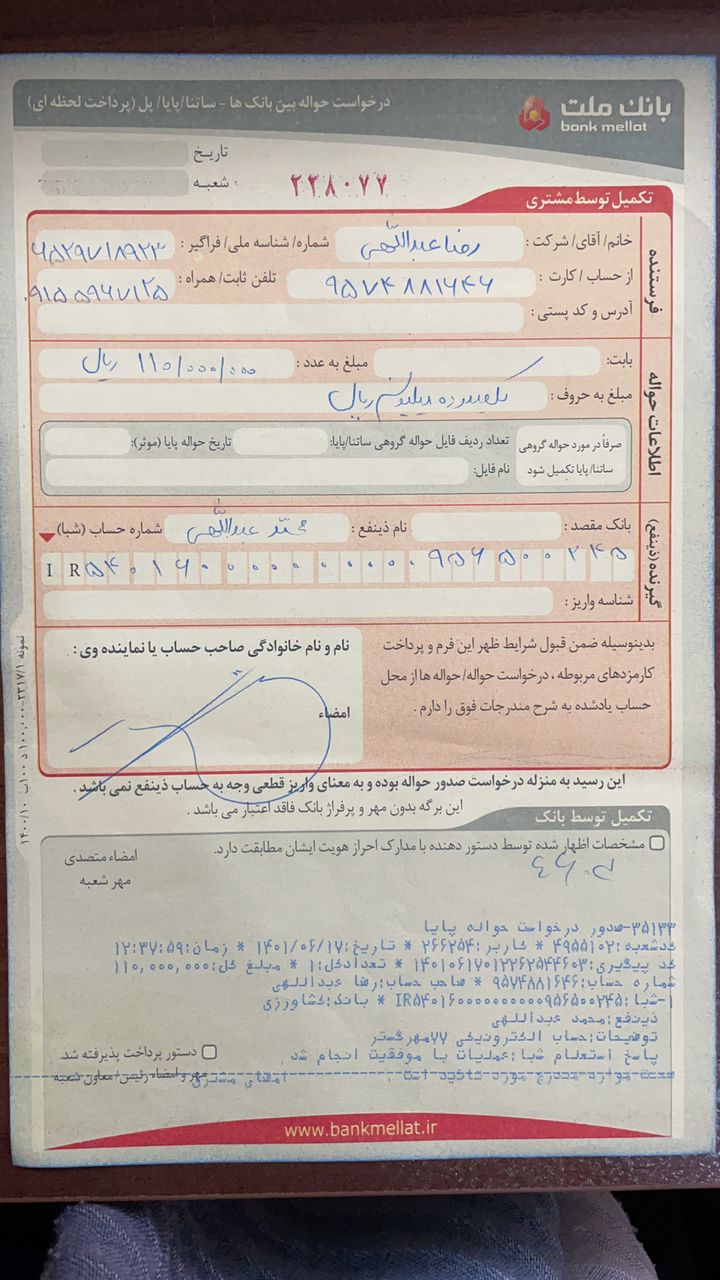 بانک ملت
bank mellat
درخواست حواله بین بانک ها - ساتنا/پایا/ پل (پرداخت لحظه ای)
تاریخ
شعبه :
۲۲۸۰۷۷
تکمیل توسط مشتری
فرستنده
خانم/ آقای/ شرکت : رضا عبداللهی شماره/ شناسه ملی/ فراگیر : ۶۵۲۹۷۱۸۹۲۳
از حساب / کارت : ۹۵۷۴۸۸۱۶۴۶ تلفن ثابت/ همراه : ۰۹۱۵۵۹۶۷۱۲۵
آدرس و کد پستی :
اطلاعات حواله
بابت: مبلغ به عدد : ۱۱۰/۰۰۰/۰۰۰ ریال
مبلغ به حروف : یکصد و ده میلیون ریال
صرفاً در مورد حواله گروهی ساتنا/ پایا تکمیل شود
تعداد ردیف فایل حواله گروهی ساتنا/پایا: تاریخ حواله پایا (موثر):
نام فایل:
گیرنده (ذینفع)
بانک مقصد : نام ذینفع : محمد عبداللهی شماره حساب (شبا)
IR۵۴۰۱۶۰۰۰۰۰۰۰۰۰۰۰۹۵۶۵۰۰۲۴۵
شناسه واریز :
بدینوسیله ضمن قبول شرایط ظهر این فرم و پرداخت
کارمزدهای مربوطه ، درخواست حواله/ حواله ها از محل
حساب یادشده به شرح مندرجات فوق را دارم .
نام و نام خانوادگی صاحب حساب یا نماینده وی :
امضاء
این رسید به منزله درخواست صدور حواله بوده و به معنای واریز قطعی وجه به حساب ذینفع نمی باشد .
این برگه بدون مهر و پرفراژ بانک فاقد اعتبار می باشد .
تکمیل توسط بانک
مشخصات اظهار شده توسط دستور دهنده با مدارک احراز هویت ایشان مطابقت دارد.
امضاء متصدی
مهر شعبه
۳۵۱۳۳-صدور درخواست حواله پایا
کدشعبه:۴۹۵۵۱۰۲ * کاربر:۲۶۶۲۵۴ * تاریخ:۱۴۰۱/۰۶/۱۷ * زمان:۱۲:۳۷:۵۹
کد پیگیری:۱۴۰۱۰۶۱۷۰۱۲۲۶۲۵۴۴۶۰۳ * تعدادکل:۱ * مبلغ کل:۱۱۰,۰۰۰,۰۰۰
شماره حساب:۹۵۷۴۸۸۱۶۴۶ * صاحب حساب:رضا عبداللهی
۱-شبا:IR۵۴۰۱۶۰۰۰۰۰۰۰۰۰۰۰۹۵۶۵۰۰۲۴۵ * بانک:کشاورزی
ذینفع:محمد عبداللهی
توضیحات:حساب الکترونیکی ۷۷مهرگستر
پاسخ استعلام شبا:عملیات با موفقیت انجام شد
صحت موارد مندرج مورد تائید است . امضای مشتری
دستور پرداخت پذیرفته شد.
مهر و امضاء رئیس/ معاون شعبه
www.bankmellat.ir